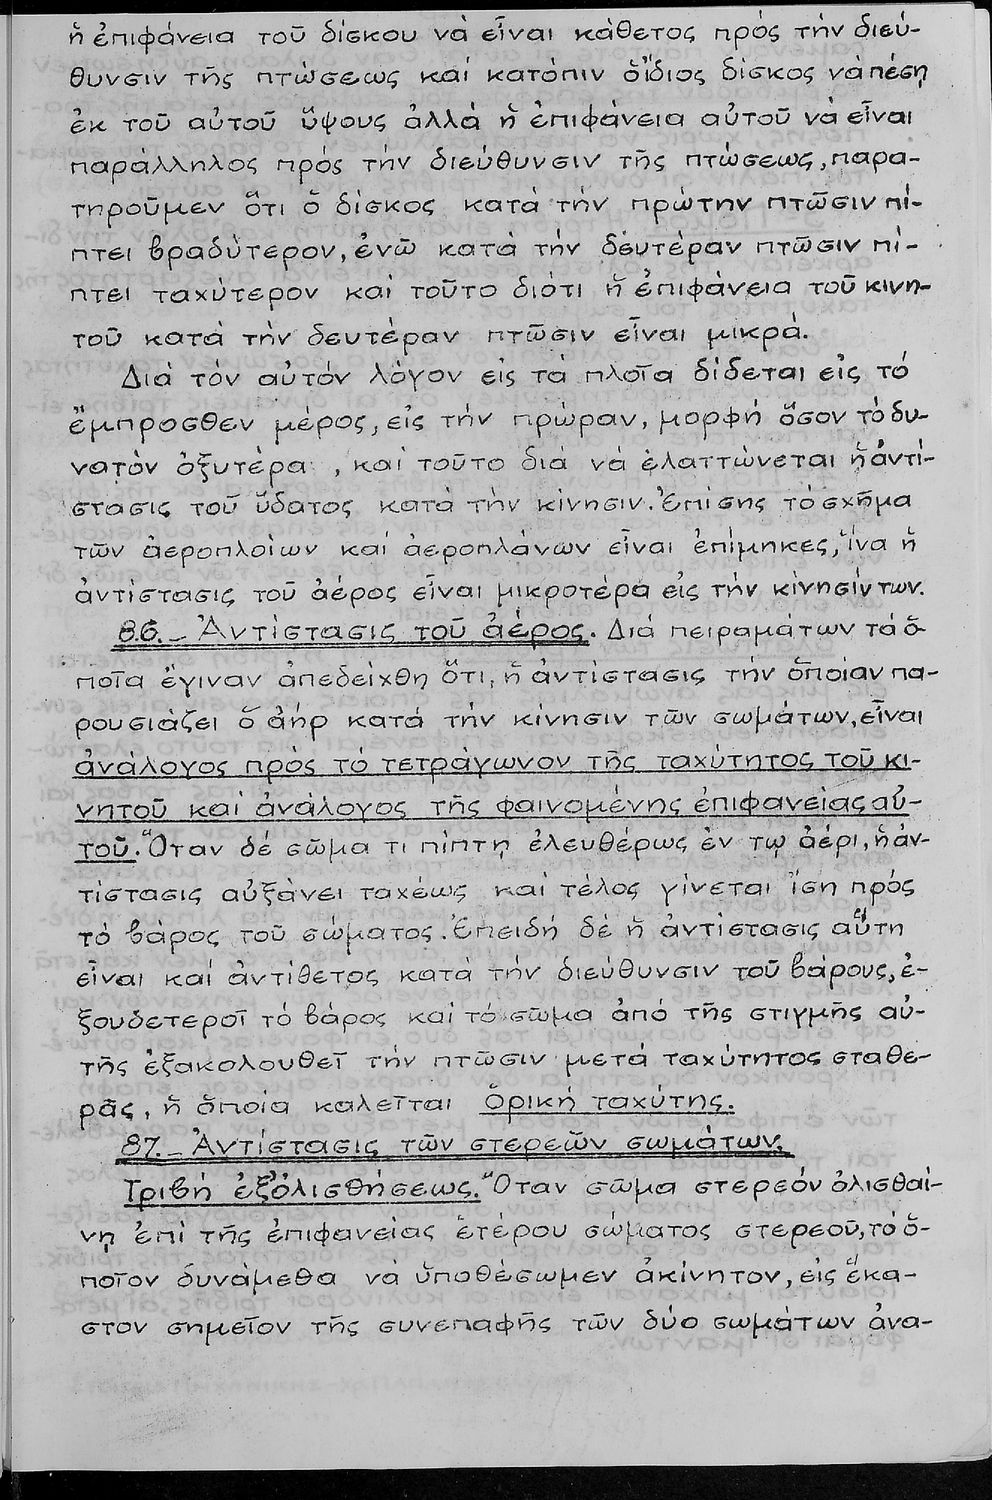 ἡ ἐπιφάνεια τοῦ δίσκου νά εἶναι κάθετος πρός τήν διεύ-
θυνσιν τῆς πτώσεως καί κατόπιν ὁ ἴδιος δίσκος νά πέσῃ
ἐκ τοῦ αὐτοῦ ὕψους ἀλλά ἡ ἐπιφάνεια αὐτοῦ νά εἶναι
παράλληλος πρός τήν διεύθυνσιν τῆς πτώσεως, παρα-
τηροῦμεν ὅτι ὁ δίσκος κατά τήν πρώτην πτῶσιν πί-
πτει βραδύτερον, ἐνῶ κατά τήν δευτέραν πτῶσιν πί-
πτει ταχύτερον καί τοῦτο διότι ἡ ἐπιφάνεια τοῦ κινη-
τοῦ κατά τήν δευτέραν πτῶσιν εἶναι μικρά.
Διά τόν αὐτόν λόγον εἰς τά πλοῖα δίδεται εἰς τό
ἔμπροσθεν μέρος, εἰς τήν πρώραν, μορφή ὅσον τό δυ-
νατόν ὀξυτέρα , καί τοῦτο διά νά ἐλαττώνεται ἡ ἀντί-
στασις τοῦ ὕδατος κατά τήν κίνησιν. Ἐπίσης τό σχῆμα
τῶν ἀεροπλοίων καί ἀεροπλάνων εἶναι ἐπίμηκες, ἵνα ἡ
ἀντίστασις τοῦ ἀέρος εἶναι μικροτέρα εἰς τήν κίνησίν των.
86.- Ἀντίστασις τοῦ ἀέρος. Διά πειραμάτων τά ὁ-
ποῖα ἔγιναν ἀπεδείχθη ὅτι, ἡ ἀντίστασις τήν ὁποίαν πα-
ρουσιάζει ὁ ἀήρ κατά τήν κίνησιν τῶν σωμάτων, εἶναι
ἀνάλογος πρός τό τετράγωνον τῆς ταχύτητος τοῦ κι-
νητοῦ καί ἀνάλογος τῆς φαινομένης ἐπιφανείας αὐ-
τοῦ. Ὅταν δέ σῶμα τι πίπτῃ ἐλευθέρως ἐν τῳ ἀέρι, ἡ ἀν-
τίστασις αὐξάνει ταχέως καί τέλος γίνεται ἴση πρός
τό βάρος τοῦ σώματος. Ἐπειδή δέ ἡ ἀντίστασις αὕτη
εἶναι καί ἀντίθετος κατά τήν διεύθυνσιν τοῦ βάρους, ἐ-
ξουδετεροῖ τό βάρος καί τό σῶμα ἀπό τῆς στιγμῆς αὐ-
τῆς ἐξακολουθεῖ τήν πτῶσιν μετά ταχύτητος σταθε-
ρᾶς, ἡ ὁποία καλεῖται ὁρική ταχύτης.
87.- Ἀντίστασις τῶν στερεῶν σωμάτων.
Τριβή ἐξολισθήσεως. Ὅταν σῶμα στερεόν ὀλισθαί-
νῃ ἐπί τῆς ἐπιφανείας ἑτέρου σώματος στερεοῦ, τό ὁ-
ποῖον δυνάμεθα νά ὑποθέσωμεν ἀκίνητον, εἰς ἕκα-
στον σημεῖον τῆς συνεπαφῆς τῶν δύο σωμάτων ἀνα-